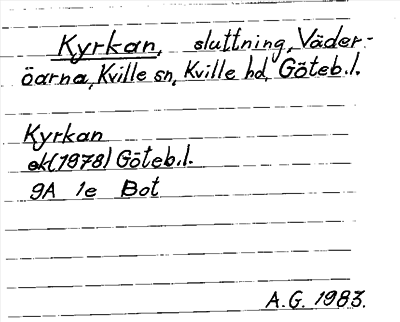 Kyrkan, sluttning, Väder-
öarna, Kville sn, Kville hd, Göteb.l.
Kyrkan
ek(1978) Göteb.l.
9A 1e Bot
A.G. 1983.